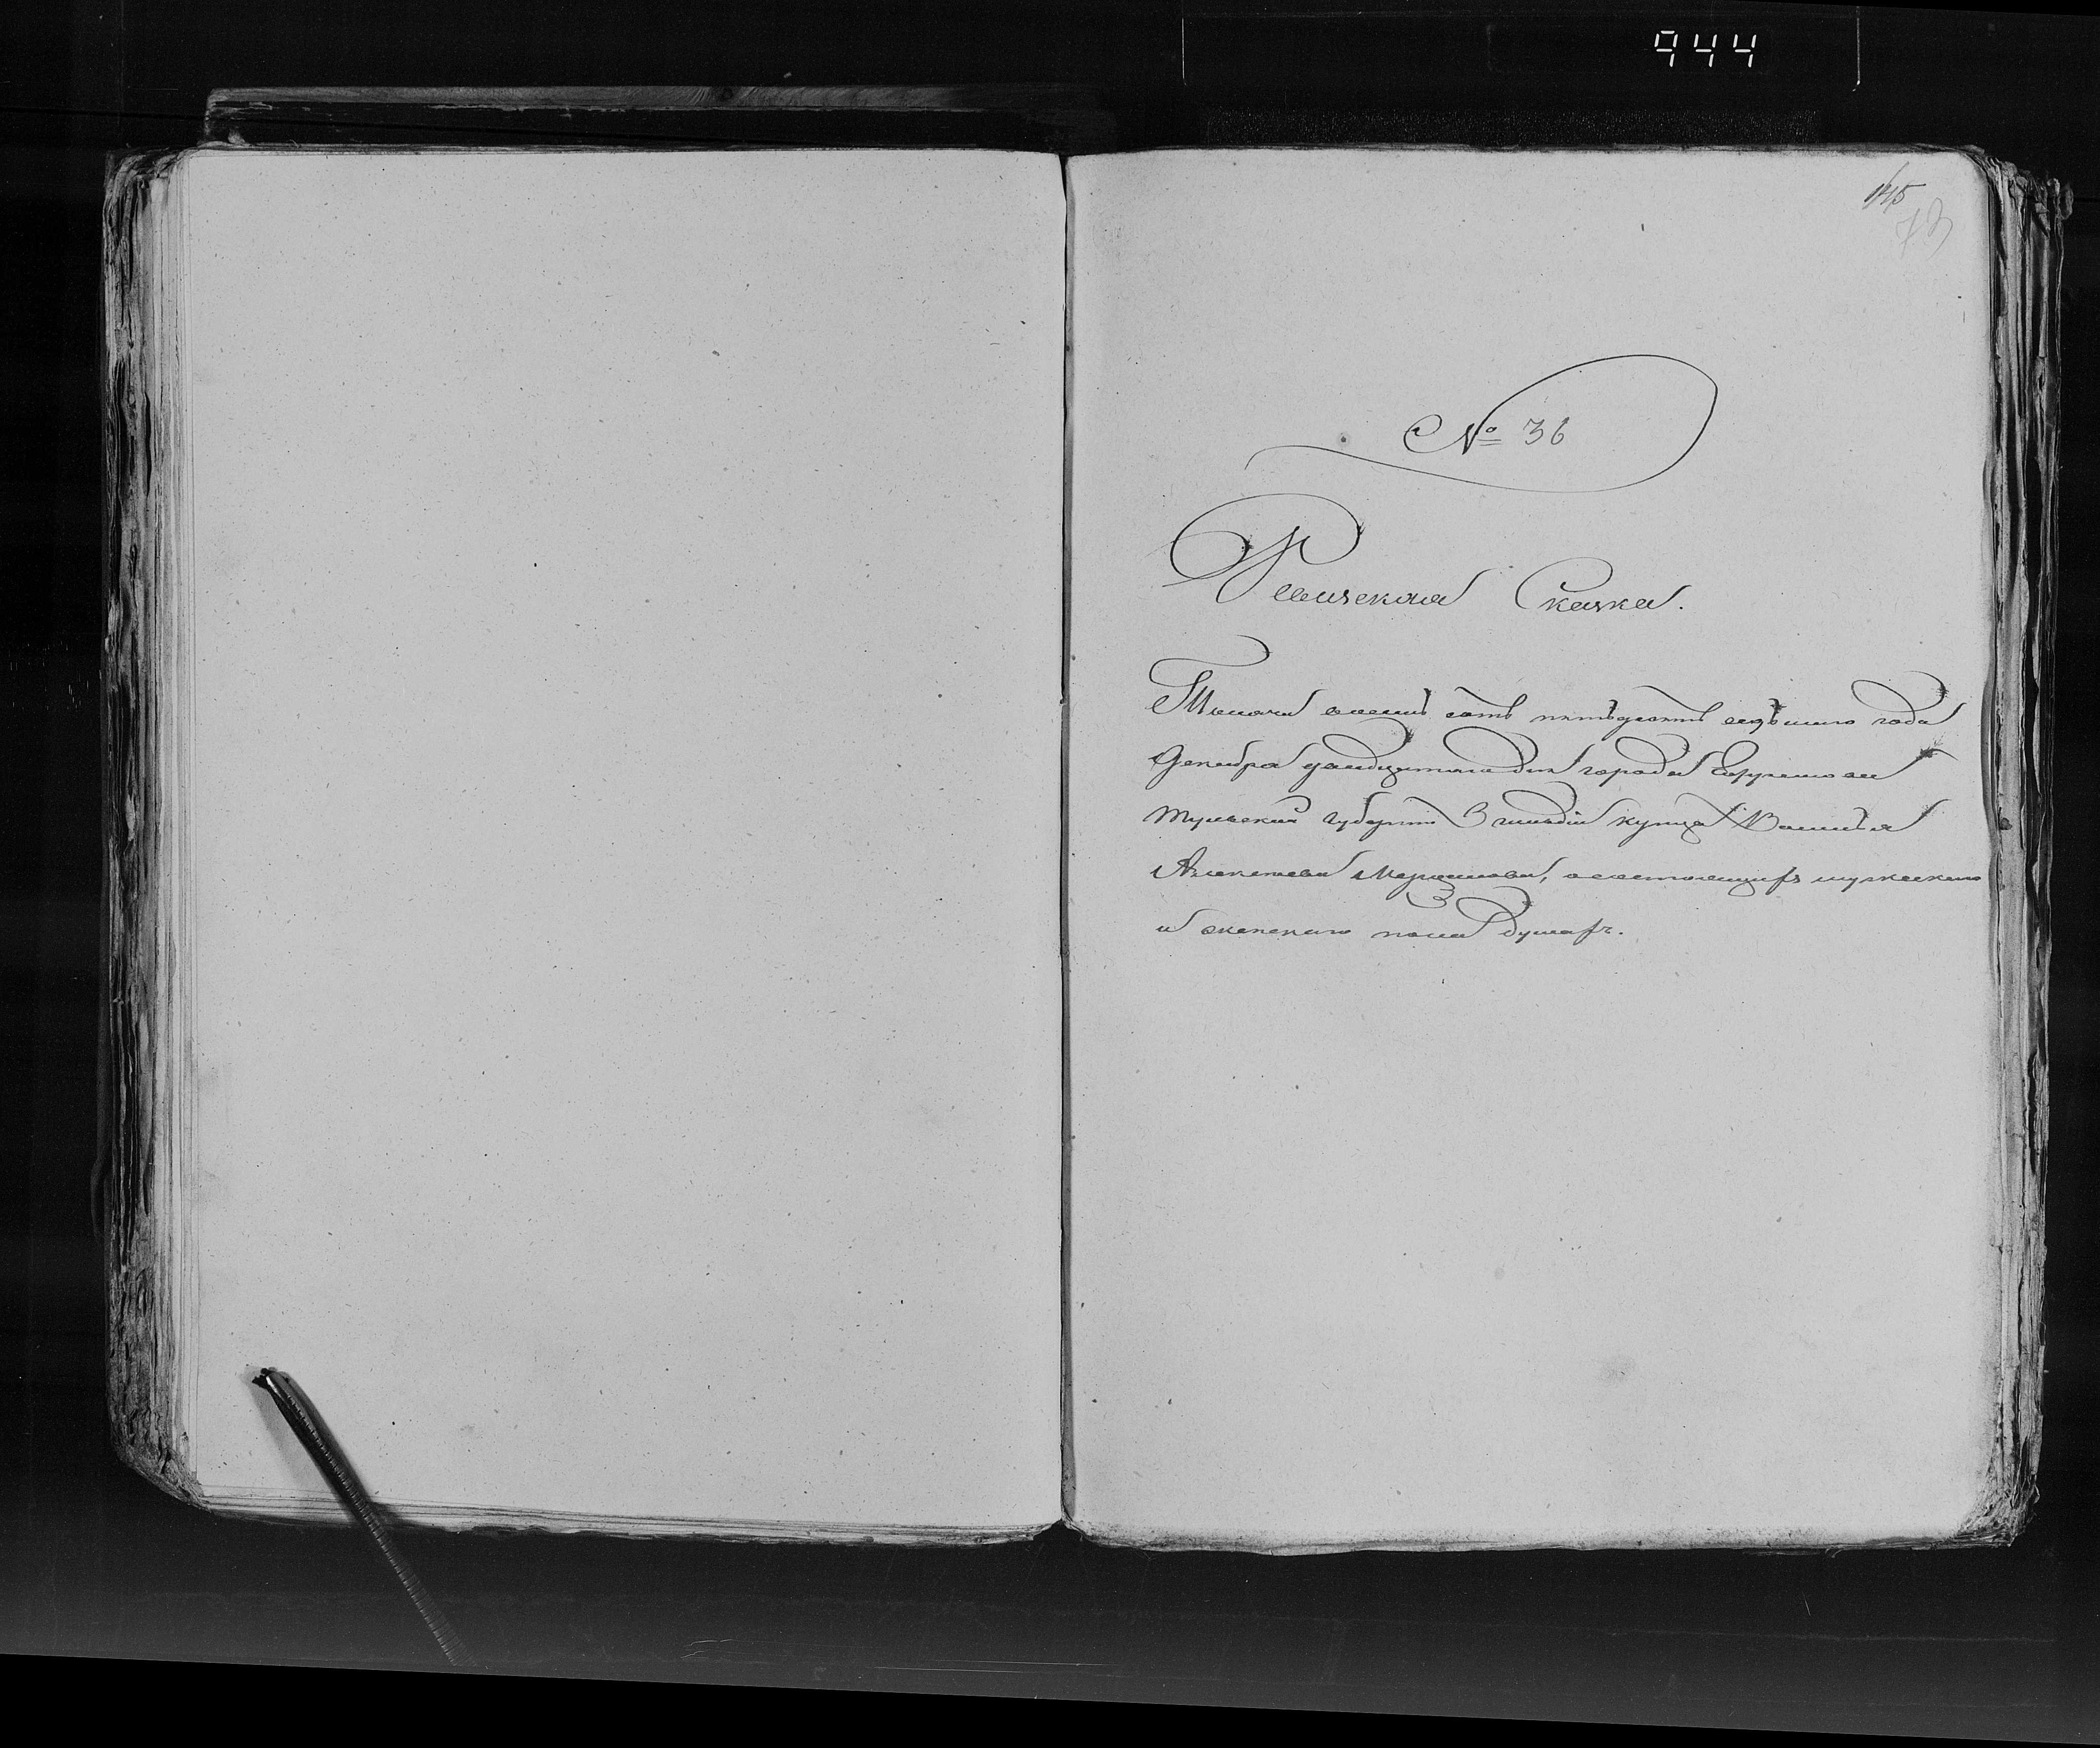 944
145
73
№ 36
Ревизская Сказка.
Тысяча восемь сотъ пятьдесятъ седьмаго года
Декабря дня города Ефремова
Тульской губерніи 3 гильдіи купца Василья
Алексеева о состоящихъ мужескаго
и женскаго пола душахъ.